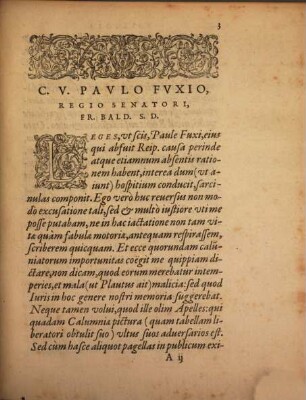 3
C. V. PAVLO FVXIO,
REGIO SENATORI,
FR. BALD. S. D.
LEGES, vt scis, Paule Fuxi, eius
qui abfuit Reip. causa perinde
atque etiamnum absentis ratio
nem habent, interea dum (vt a
iunt) hospitium conducit, sarci
nulas componit. Ego vero huc reuersus non mo
do excusatione tali, sed & multò iustiore vti me
posse putabam, ne in hac iactatione non tam vi
tæ quàm fabula motoria, antequam respirassem,
scriberem quicquam. Et ecce quorundam calũ-
niatorum importunitas coëgit me quippiam di
ctare, non dicam, quod eorum merebatur intem-
peries, et mala (ut Plautus ait) malicia: sed quod
Iuris in hoc genere nostri memoria suggerebat.
Neque tamen volui, quod ille olim Apelles: qui
quadam Calumnia pictura (quam tabellam li
beratori obtulit suo) vltus suos aduersarios est.
Sed cùm hasce aliquot pagellas in publicum exi-
A ij